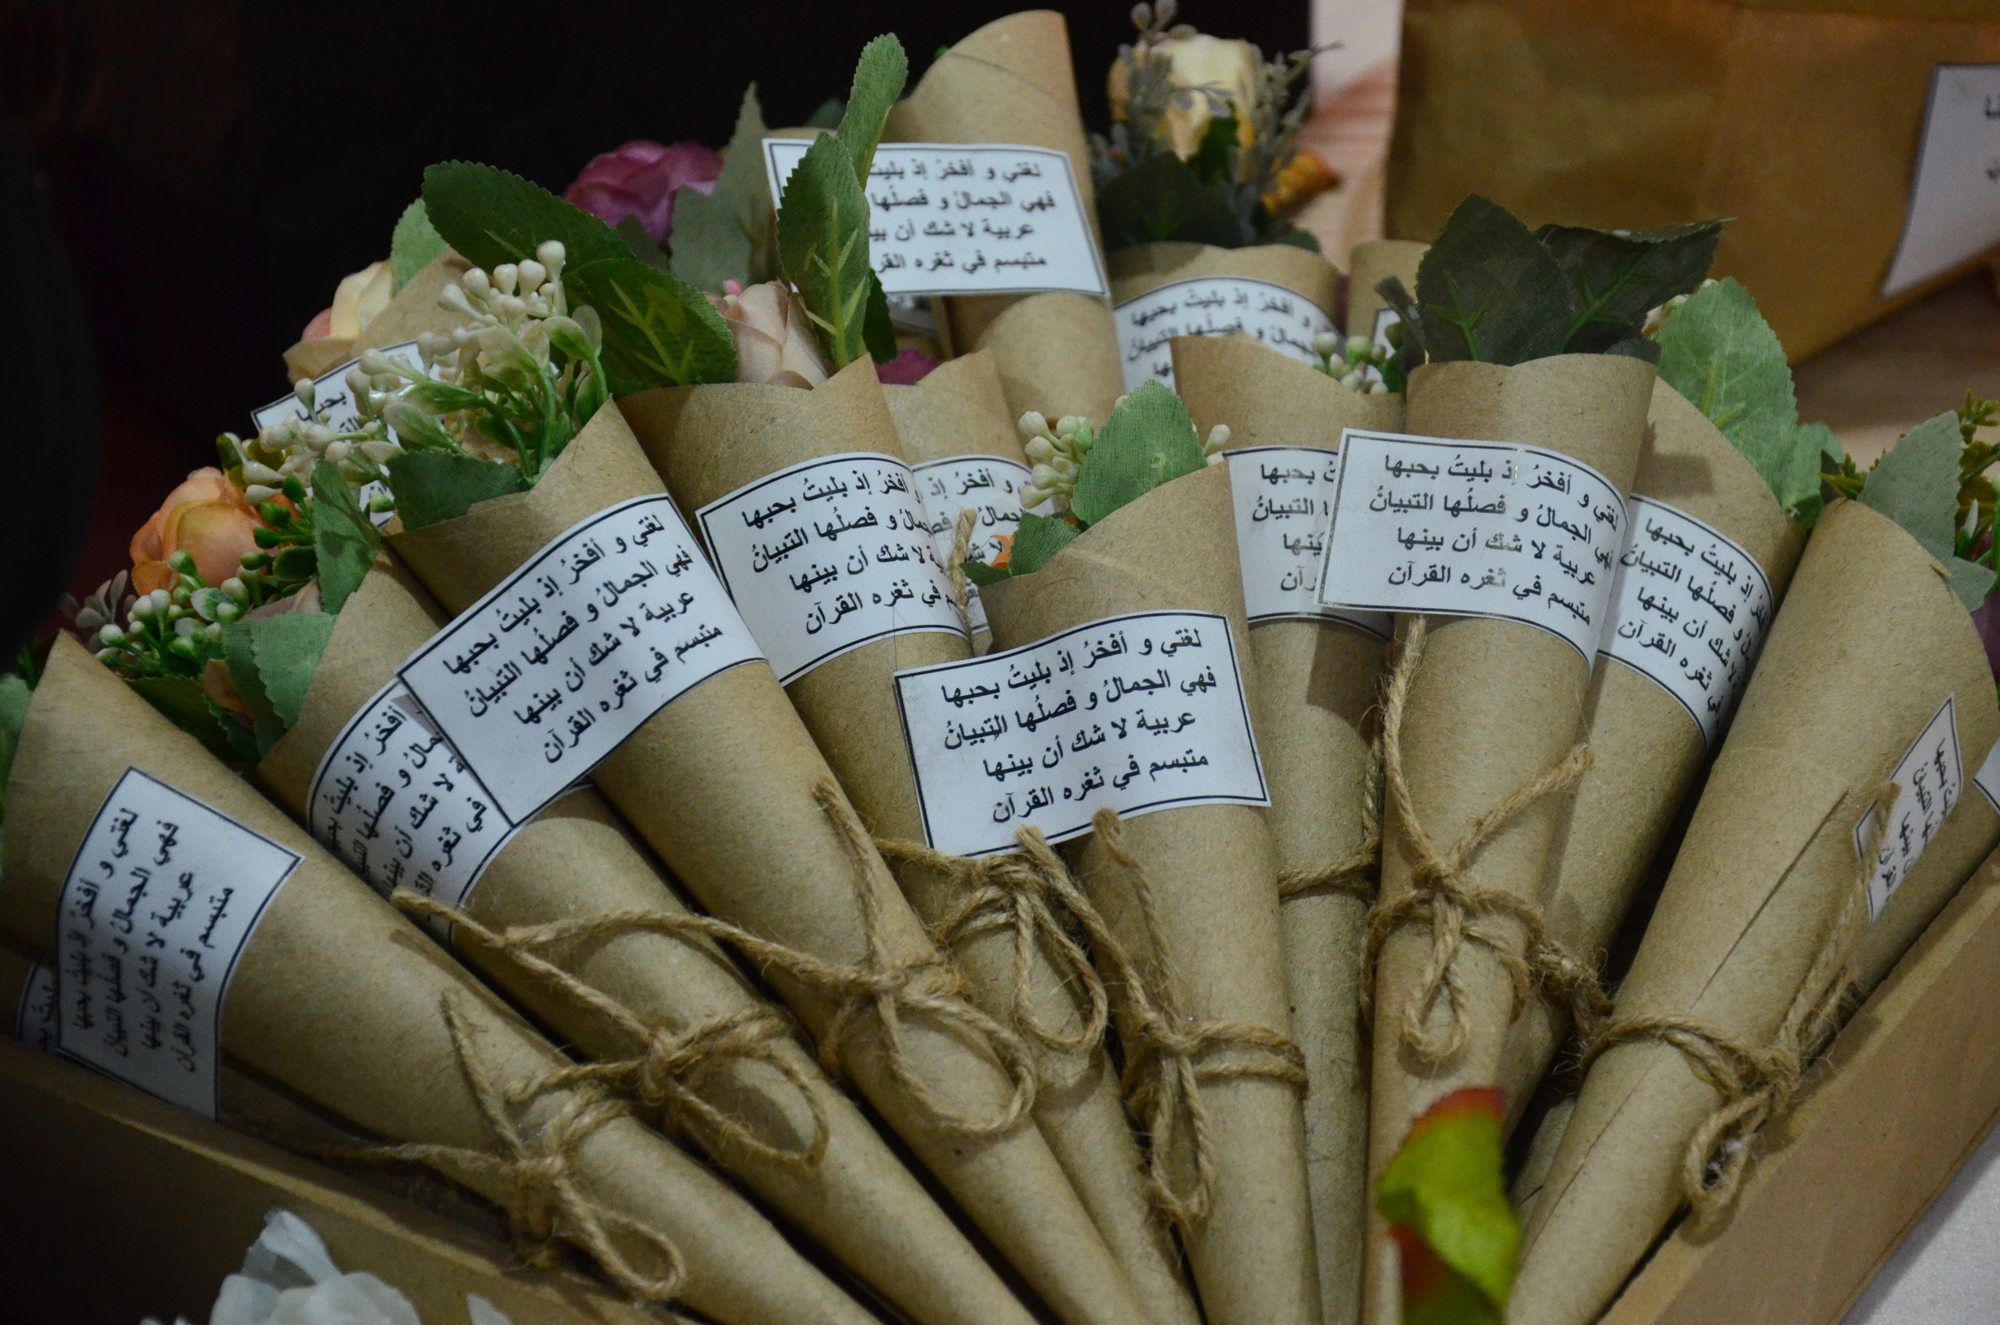 لغتي و أفخرُ إذ بليتُ بحبها
فهي الجمالُ و فصلُها التبيانُ
عربية لا شك أن بينها
متبسم في ثغره القرآن